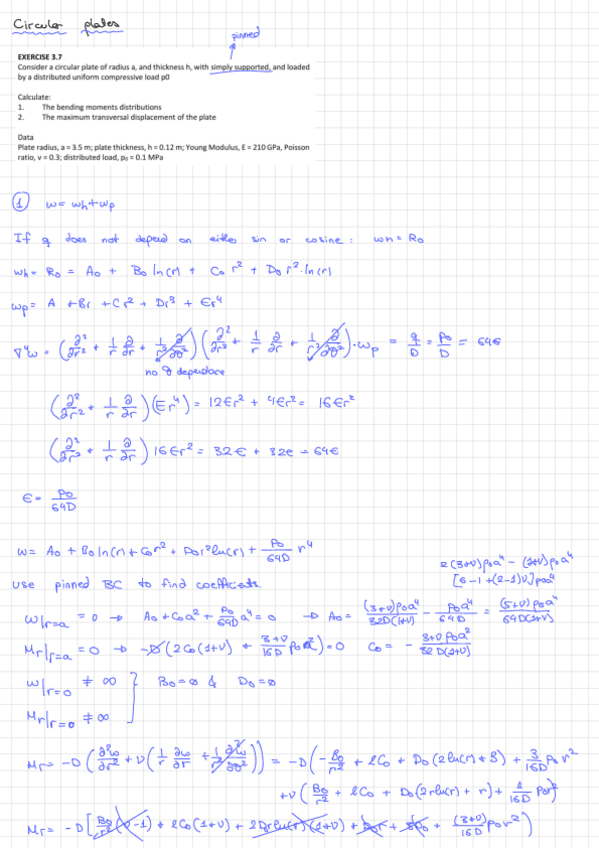 Circular plates
pinned
EXERCISE 3.7
Consider a circular plate of radius a, and thickness h, with simply supported, and loaded
by a distributed uniform compressive load p0
Calculate:
1. The bending moments distributions
2. The maximum transversal displacement of the plate
Data
Plate radius, a = 3.5 m; plate thickness, h = 0.12 m; Young Modulus, E = 210 GPa, Poisson
ratio, ν = 0.3; distributed load, p₀ = 0.1 MPa
① w = wh + wp
If q does not depend on either sin or cosine: wh = R₀
wh = R₀ = A₀ + B₀ ln(r) + C₀ r² + D₀ r² · ln(r)
wp = A + Br + Cr² + Dr³ + Er⁴
∇⁴w = (∂²/∂r² + 1/r ∂/∂r + 1/r² ∂²/∂θ²)(∂²/∂r² + 1/r ∂/∂r + 1/r² ∂²/∂θ²) · wp = q/D = p₀/D = 64E
no θ dependance
(∂²/∂r² + 1/r ∂/∂r)(Er⁴) = 12Er² + 4Er² = 16Er²
(∂²/∂r² + 1/r ∂/∂r) 16Er² = 32E + 32E = 64E
E = p₀/64D
w = A₀ + B₀ ln(r) + C₀r² + D₀r² ln(r) + p₀/64D r⁴
2(3+ν)p₀a⁴ - (1+ν)p₀a⁴
use pinned BC to find coefficients.
[6-1+(2-1)ν]p₀a⁴
w|r=a = 0 → A₀ + C₀a² + p₀/64D a⁴ = 0 → A₀ = (3+ν)p₀a⁴/32D(1+ν) - p₀a⁴/64D = (5+ν)p₀a⁴/64D(1+ν)
Mr|r=a = 0 → -D(2C₀(1+ν) + 3+ν/16D p₀a²) = 0 C₀ = - 3+ν p₀a²/32D(1+ν)
w|r=0 ≠ ∞ } B₀ = 0 & D₀ = 0
Mr|r=0 ≠ ∞
Mr = -D(∂²w/∂r² + ν(1/r ∂w/∂r + 1/r² ∂²w/∂θ²)) = -D(-B₀/r² + 2C₀ + D₀(2ln(r) + 3) + 3/16D p₀r²
+ν(B₀/r² + 2C₀ + D₀(2rln(r) + r) + 1/16D p₀r²
Mr = -D[B₀/r²(ν-1) + 2C₀(1+ν) + 2D₀rln(r)(1+ν) + + 3D₀ + (3+ν)/16D p₀r²)